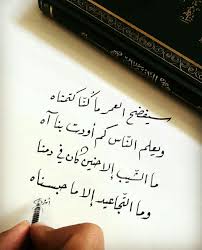 سيفضح العمر ما كنّا كتمناه
ويعلم النّاس كم أودت بنا آه
ما الشّيب إلا حنين كان في دمنا
وما التّجاعيد إلا ما حبسناه